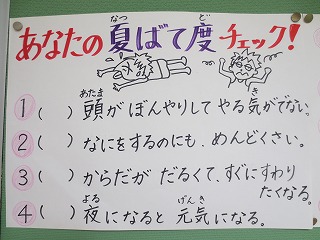 あなたの夏ばて度チェック!
1( )頭がぼんやりしてやる気がでない。
2( )なにをするのにも、めんどくさい。
3( )からだがだるくて、すぐにすわり
たくなる。
4( )夜になると元気になる。